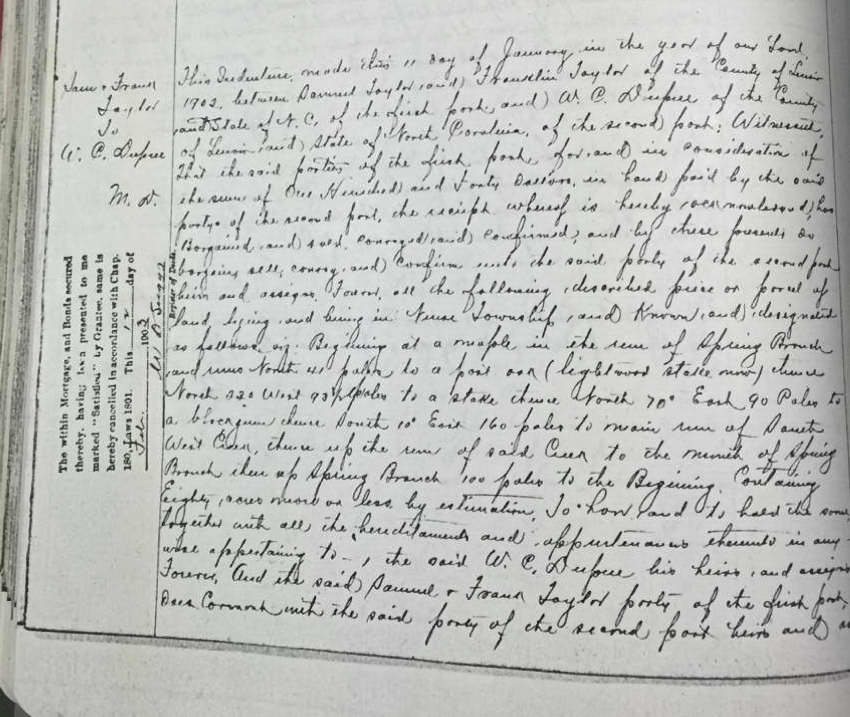 Sam & Frank
Taylor
To
W. C. Dupree
M. D.
The within Mortgage, and Bonds secured
thereby, having been presented to me
marked "Satisfied" by Grantee, same is
hereby cancelled in accordance with Chap.
180, Laws 1891. This 12 day of
Feb. 1903
Register of Deeds.
This Indenture, made this 11 day of January in the year of our Lord,
1902, between Samuel Taylor and Franklin Taylor of the County of Lenoir
and State of N. C. of the first part, and W. C. Dupree of the County
of Lenoir and State of North Carolina, of the second part; Witnesseth,
That the said parties of the first part, for and in consideration of
the sum of One Hundred and Forty Dollars, in hand paid by the said
party of the second part, the receipt whereof is hereby acknowledged, has
Bargained and sold, conveyed and confirmed, and by these presents do
bargain, sell, convey, and confirm unto the said party of the second part
heirs and assigns, Forever, all the following described piece or parcel of
land, lying and being in Neuse Township, and Known and designated
as follows, viz: Beginning at a maple in the run of Spring Branch
and runs North 41 poles to a post oak (lightwood stake now) thence
North 320 West poles to a stake thence North 70° East 90 Poles to
a blackgum thence South 10° East 160 poles to main run of
West Creek, thence up the run of said Creek to the mouth of Spring
Branch then up Spring Branch 100 poles to the Begining. Containing
Eighty acres more or less by estimation, To have and to hold the same,
together with all the hereditaments and appurtenances thereunto in any
wise appertaining to -, the said W. C. Dupree his heirs and assigns
Forever, And the said Samuel & Frank Taylor party of the first part,
Does Covenant with the said party of the second part heirs and